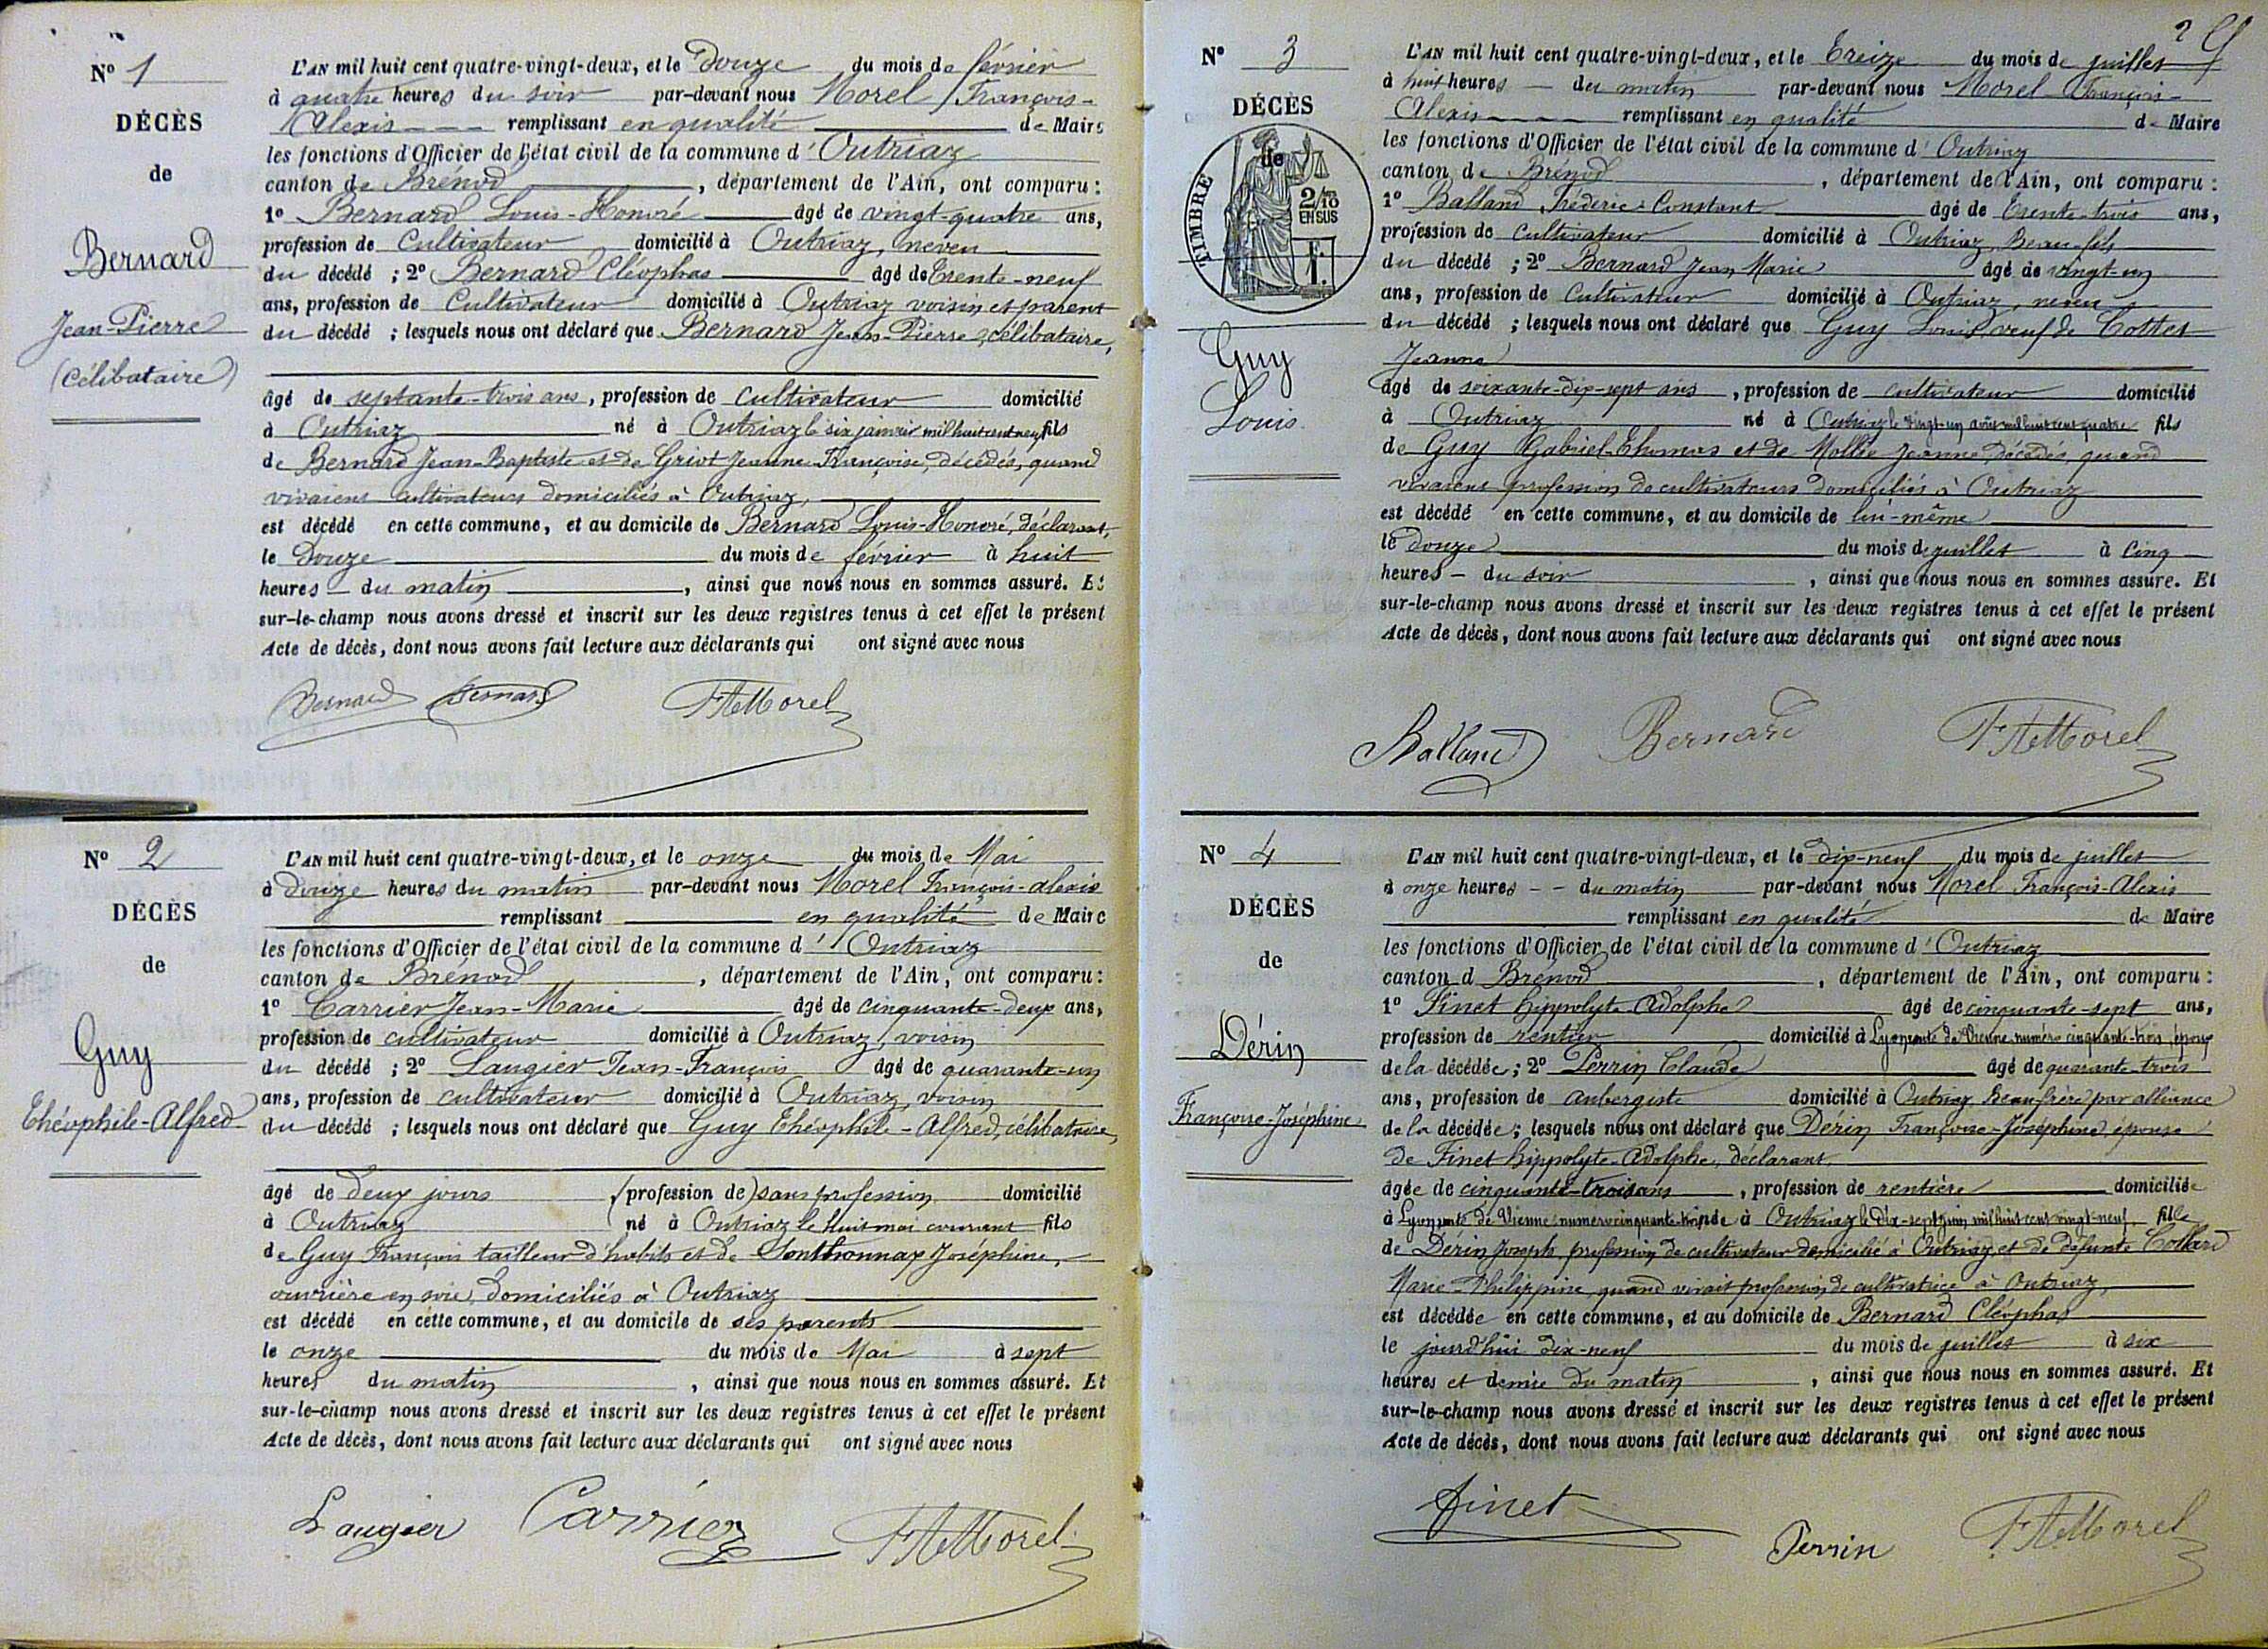 N° 1
DÉCÈS
de
Bernard
Jean-Pierre
(Célibataire)
L'AN mil huit cent quatre-vingt-deux, et le Douze du mois de février
à quatre heures du soir par-devant nous Morel François-
Alexis remplissant en qualité de Maire
les fonctions d'Officier de l'état civil de la commune d'Outriaz
canton de Brénod, département de l'Ain, ont comparu :
1° Bernard Louis-Honoré âgé de vingt-quatre ans,
profession de Cultivateur domicilié à Outriaz, neveu
du décédé ; 2° Bernard Cléophas âgé de trente-neuf
ans, profession de Cultivateur domicilié à Outriaz voisin et parent
du décédé ; lesquels nous ont déclaré que Bernard Jean-Pierre, célibataire,
âgé de septante-trois ans, profession de Cultivateur domicilié
à Outriaz né à Outriaz le six janvier mil huit cent neuf fils
de Bernard Jean-Baptiste et de Griot Jeanne-Françoise, décédés, quand
vivaient cultivateurs domiciliés à Outriaz,
est décédé en cette commune, et au domicile de Bernard Louis-Honoré, déclarant,
le Douze du mois de février à huit
heures du matin, ainsi que nous nous en sommes assuré. Et
sur-le-champ nous avons dressé et inscrit sur les deux registres tenus à cet effet le présent
Acte de décès, dont nous avons fait lecture aux déclarants qui ont signé avec nous
Bernard Bernard FAMorel
N° 2
DÉCÈS
de
Guy
Théophile-Alfred
L'AN mil huit cent quatre-vingt-deux, et le onze du mois de Mai
à douze heures du matin par-devant nous Morel François-Alexis
remplissant en qualité de Maire
les fonctions d'Officier de l'état civil de la commune d'Outriaz
canton de Brénod, département de l'Ain, ont comparu :
1° Carrier Jean-Marie âgé de cinquante-deux ans,
profession de cultivateur domicilié à Outriaz, voisin
du décédé ; 2° Laugier Jean-François âgé de quarante-un
ans, profession de cultivateur domicilié à Outriaz, voisin
du décédé ; lesquels nous ont déclaré que Guy Théophile-Alfred, célibataire,
âgé de deux jours (profession de) sans profession domicilié
à Outriaz né à Outriaz le huit mai courant fils
de Guy François tailleur d'habits et de Sonthonnax Joséphine,
ouvrière en soie, domiciliés à Outriaz
est décédé en cette commune, et au domicile de ses parents
le onze du mois de Mai à sept
heures du matin, ainsi que nous nous en sommes assuré. Et
sur-le-champ nous avons dressé et inscrit sur les deux registres tenus à cet effet le présent
Acte de décès, dont nous avons fait lecture aux déclarants qui ont signé avec nous
Laugier Carrier FAMorel
2
N° 3
DÉCÈS
de
TIMBRE
2/10
EN SUS
Guy
Louis
L'AN mil huit cent quatre-vingt-deux, et le treize du mois de juillet
à huit heures du matin par-devant nous Morel François-
Alexis remplissant en qualité de Maire
les fonctions d'Officier de l'état civil de la commune d'Outriaz
canton de Brénod, département de l'Ain, ont comparu :
1° Balland Fréderic-Constant âgé de trente-trois ans,
profession de cultivateur domicilié à Outriaz, Beau-fils
du décédé ; 2° Bernard Jean Marie âgé de vingt-un
ans, profession de Cultivateur domicilié à Outriaz, neveu
du décédé ; lesquels nous ont déclaré que Guy Louis, veuf de Cottet
Jeanne
âgé de soixante-dix-sept ans, profession de cultivateur domicilié
à Outriaz né à Outriaz le vingt-un août mil huit cent quatre fils
de Guy Gabriel-Thomas et de Mollie Jeanne, décédés, quand
vivaient profession de cultivateurs domiciliés à Outriaz
est décédé en cette commune, et au domicile de lui-même
le douze du mois de juillet à cinq
heures du soir, ainsi que nous nous en sommes assuré. Et
sur-le-champ nous avons dressé et inscrit sur les deux registres tenus à cet effet le présent
Acte de décès, dont nous avons fait lecture aux déclarants qui ont signé avec nous
Balland Bernard FAMorel
N° 4
DÉCÈS
de
Dérin
Françoise-Joséphine
L'AN mil huit cent quatre-vingt-deux, et le dix-neuf du mois de juillet
à onze heures du matin par-devant nous Morel François-Alexis
remplissant en qualité de Maire
les fonctions d'Officier de l'état civil de la commune d'Outriaz
canton d Brénod, département de l'Ain, ont comparu :
1° Finet Hippolyte-Adolphe âgé de cinquante-sept ans,
profession de rentier domicilié à Lyon, route de Vienne, numéro cinquante-trois, époux
de la décédée ; 2° Perrin Claude âgé de quarante-trois
ans, profession de aubergiste domicilié à Outriaz Beau-frère par alliance
de la décédée ; lesquels nous ont déclaré que Dérin Françoise-Joséphine, épouse
de Finet Hippolyte-Adolphe, déclarant
âgée de cinquante-trois ans, profession de rentière domiciliée
à Lyon route de Vienne numéro cinquante-trois née à Outriaz le dix-sept juin mil huit cent vingt-neuf fille
de Dérin Joseph, profession de cultivateur domicilié à Outriaz et de défunte Collard
Marie-Philippine, quand vivait profession de cultivatrice à Outriaz,
est décédée en cette commune, et au domicile de Bernard Cléophas
le jourd'hui dix-neuf du mois de juillet à six
heures et demie du matin, ainsi que nous nous en sommes assuré. Et
sur-le-champ nous avons dressé et inscrit sur les deux registres tenus à cet effet le présent
Acte de décès, dont nous avons fait lecture aux déclarants qui ont signé avec nous
Finet Perrin FAMorel